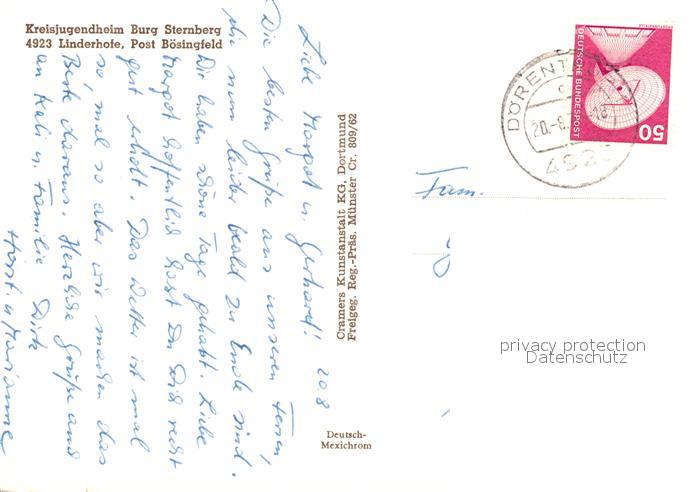 Kreisjugendheim Burg Sternberg
4923 Linderhofe, Post Bösingfeld
Liebe Margot u. Gerhard! 20.8
Die besten Grüße aus unseren Ferien,
die nun leider bald zu Ende sind.
Wir haben schöne Tage gehabt. Liebe
Margot hoffentlich hast Du Dich recht
gut erholt. Das Wetter ist mal
so, mal so aber wir machen das
Beste daraus. Herzliche Grüße auch
an Kati u. Familie Dirk
Horst u. Marianne
Cramers Kunstanstalt KG, Dortmund
Freigeg. Reg.-Präs. Münster Cr. 809/62
Deutsch-
Mexichrom
DEUTSCHE BUNDESPOST
50
DÖRENT
20.-8.
492
Fam.
privacy protection
Datenschutz